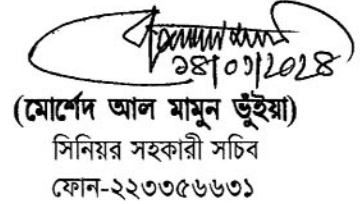 ১৪|০১|২০২৪
(মোর্শেদ আল মামুন ভুঁইয়া)
সিনিয়র সহকারী সচিব
ফোন-২২৩৩৫৬৬৩১